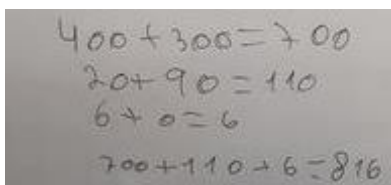 400+300=700
20+90=110
6+0=6
700+110+6=816